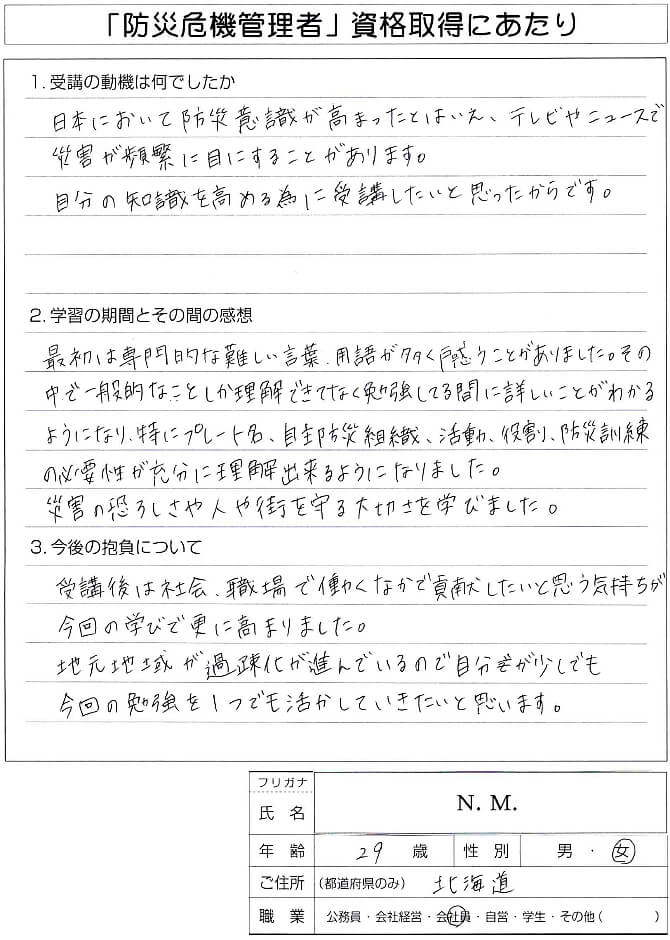 「防災危機管理者」資格取得にあたり
1. 受講の動機は何でしたか
日本において防災意識が高まったとはいえ、テレビやニュースで
災害が頻繁に目にすることがあります。
自分の知識を高める為に受講したいと思ったからです。
2. 学習の期間とその間の感想
最初は専門的な難しい言葉、用語が多く戸惑うことがありました。その
中で一般的なことしか理解できてなく勉強してる間に詳しいことがわかる
ようになり、特にプレート名、自主防災組織、活動、役割、防災訓練
の必要性が充分に理解出来るようになりました。
災害の恐ろしさや人や街を守る大切さを学びました。
3. 今後の抱負について
受講後は社会、職場で働くなかで貢献したいと思う気持ちが
今回の学びで更に高まりました。
地元地域が過疎化が進んでいるので自分が少しでも
今回の勉強を1つでも活かしていきたいと思います。
フリガナ
氏名 N. M.
年齢 29 歳 性別 男・女
ご住所 (都道府県のみ) 北海道
職業 公務員・会社経営・会社員・自営・学生・その他( )